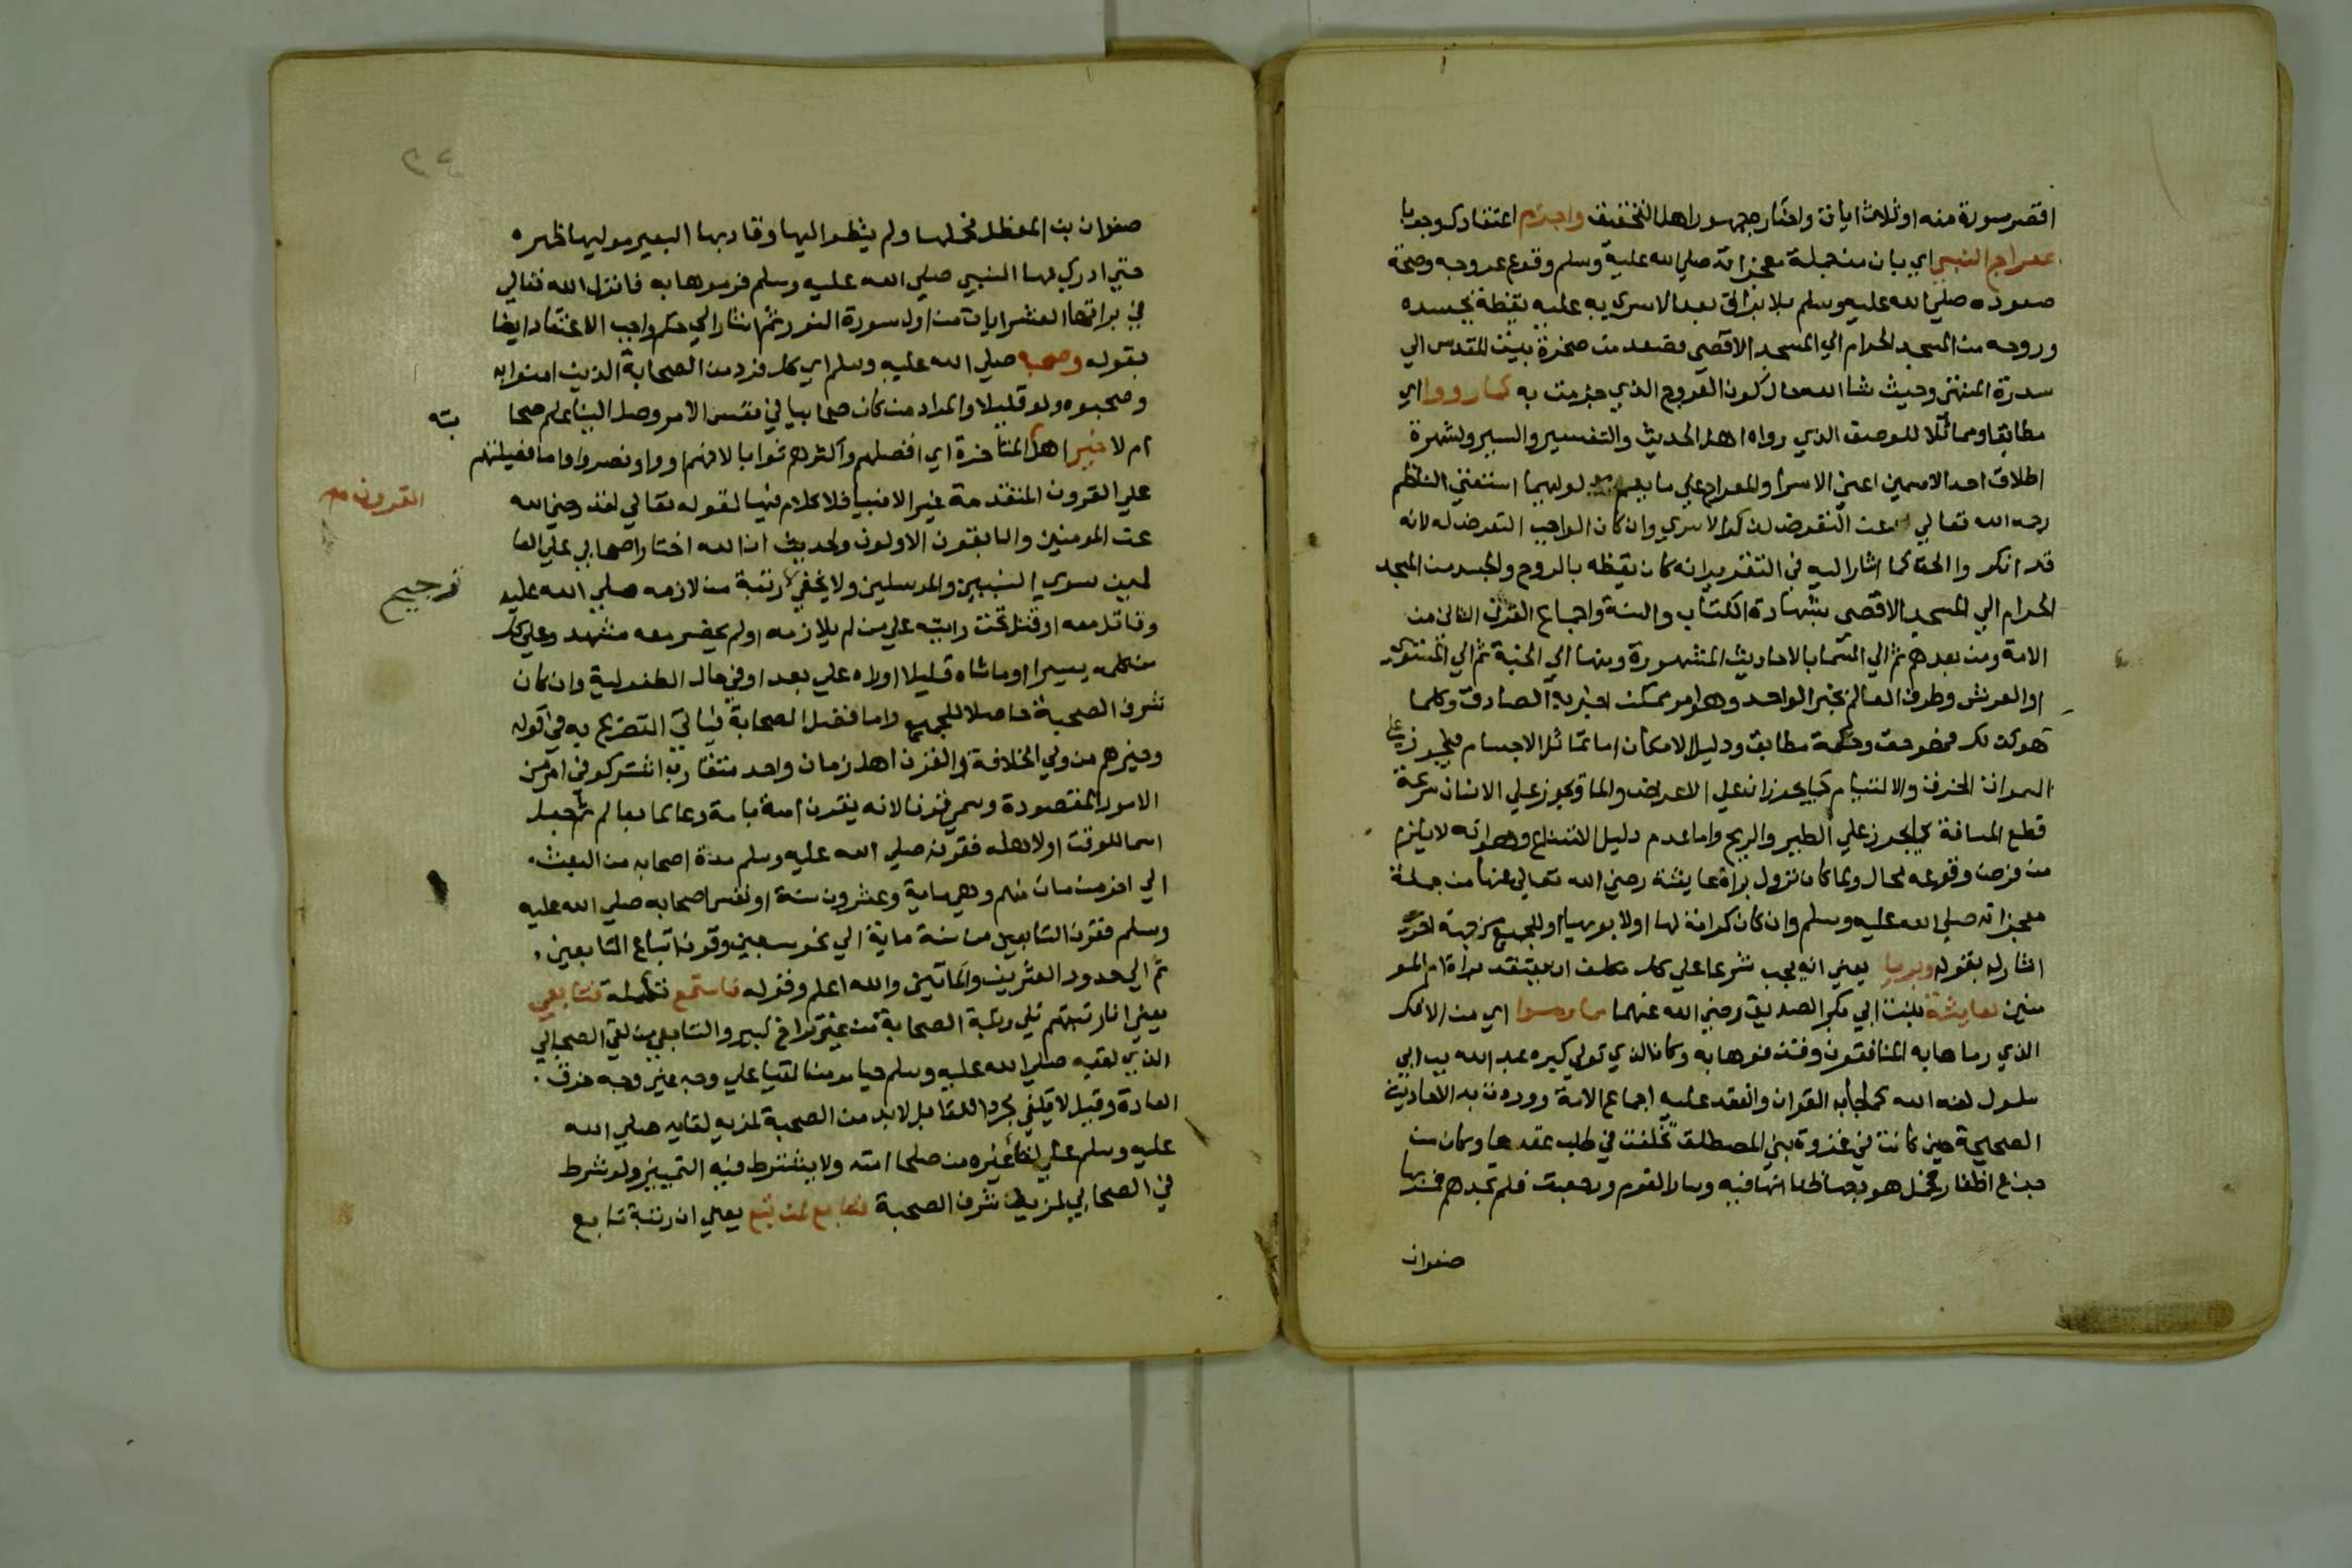 اقصر سورة منه او ثلاث ايات واختار جمهور اهل التحقيق واجزم اعتقادك وجوبا
بمعراج النبي اي بان من جملة معجزاته صلي الله عليه وسلم وقوع عروجه وصحة
صعوده صلي الله عليه وسلم بالبراق بعد الاسري به عليه يقظة بجسده
وروحه من المسجد الحرام الي المسجد الاقصي فصعد من صخرة بيت المقدس الي
سدرة المنتهي وحيث شا الله حال كون العروج الذي جزمت به كما رووا اي
مطابقا ومماثلا للوصف الذي رواه اهل الحديث والتفسير والسير ولشهرة
اطلاق احد الاسمين اعني الاسرا والمعراج علي ما يعم مدلوليهما استغني الناظم
رحمه الله تعالي عن التعرض لذكر الاسري وان كان الواجب التعرض له لانه
قد انكر والحق كما اشار اليه في التقدير انه كان يقظه بالروح والجسد من المسجد
الحرام الي المسجد الاقصي بشهادة الكتاب والسنة واجماع القرن الثاني من
الامة ومن بعدهم ثم الي السما بالاحاديث المشهورة ومنها الي الجنة ثم الي المستوي
او العرش وطرف العالم بخبر الواحد وهو امر ممكن اخبر به الصادق وكلما
هو كذلك فهو حق وحكمة مطابق ودليل الامكان اما تماثل الاجسام فيجوز علي
السموات الخرق والالتيام كما يجوزان علي الارض والما ويجوز علي الانسان سرعة
قطع المسافة كما يجوز علي الطير والريح واما عدم دليل الامتناع وهو انه لا يلزم
من فرض وقوعه محال ولما كان نزول براة عايشة رضي الله تعالي عنها من جملة
معجزاته صلي الله عليه وسلم وان كان كرامة لها اولابويها او للجميع من جهة اخري
اشار له بقوله وبرين يعني انه يجب شرعا علي كل مكلف ان يعتقد براة ام المو
منين لعايشة بنت ابي بكر الصديق رضي الله عنهما مما رموا اي من الافك
الذي رماها به المنافقون وقذفوها به وكان الذي تولي كبره عبد الله بن ابي
سلول لعنه الله كما جا به القران وانعقد عليه اجماع الامة ووردت به الاحاديث
الصحيحة حين كانت في غزوة بني المصطلق تخلفت في طلب عقدها وكان من
جزع اظفار فحمل هودجها ظنا انها فيه وسار القوم ورجعت فلم تجدهم فمر بها
صفوان
صفوان بن المعطل فحملها ولم ينظر اليها وقاد بها البعير موليها ظهره
حتي ادرك بها النبي صلي الله عليه وسلم فرموها به فانزل الله تعالي
في براتها العشر ايات من اول سورة النور ثم اشار الي حكم واجب الاعتقاد ايضا
بقوله وصحبه صلي الله عليه وسلم اي كل فرد من الصحابة الذين امنوا به
وصحبوه ولو قليلا والمراد من كان صحابيا في نفس الامر وصل الينا علم صحا
بته
ام لا خير اهل المتاخرة اي افضلهم واكثرهم ثوابا لانهم اووا ونصروا واما فضيلتهم
القرون
علي القرون المتقدمة غير الانبيا فلا كلام فيها لقوله تعالي لقد رضي الله
عن المومنين والسابقون الاولون ولحديث ان الله اختار اصحابي علي العا
لمين سوي النبيين والمرسلين ولا يخفي رتبة من لازمه صلي الله عليه
ترجيح
وقاتل معه او قتل تحت رايته علي من لم يلازمه او لم يحضر معه مشهد وعلي
من كلمه يسيرا او ماشاه قليلا او راه علي بعد او في حال الطفولية وان كان
شرف الصحبة حاصلا للجميع واما افضل الصحابة فياتي التصريح به في قوله
وخيرهم من ولي الخلافة والقرن اهل زمان واحد متقارب اشتركوا في امر من
الامور المقصودة وسمي قرنا لانه يقرن امة بامة وعالما بعالم ثم جعل
اسما للوقت او لاهله فقرنه صلي الله عليه وسلم مدة اصحابه من البعث
الي اخر من مات منهم وهي ماية وعشرون سنة او نفس اصحابه صلي الله عليه
وسلم فقرن التابعين من سنة ماية الي نحو سبعين وقرن اتباع التابعين
ثم الي حدود العشرين والماتين والله اعلم وقوله فاستمع تكملة فتابعي
يعني ان رتبتهم تلي رتبة الصحابة من غير تراخ كبير والتابعي من لقي الصحابي
الذي لقيه صلي الله عليه وسلم حيا مومنا لقيا علي وجه غير وجه خرق
العادة وقيل لا يكفي مجرد اللقا بل لا بد من الصحبة لمزيد لقايه صلي الله
عليه وسلم علي لقا غيره من صلحا امته ولا يشترط فيه التمييز ولو شرط
في الصحابي لمزيد شرف الصحبة فتابع لمن تبع يعني ان رتبة تابع